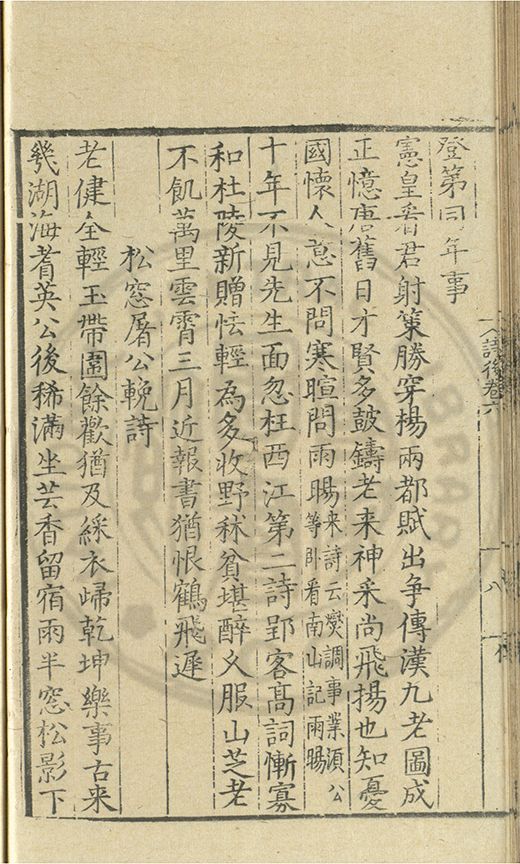 登第同年事
憲皇看君射策勝穿楊兩都賦出爭傳漢九老圖成
正憶唐舊日才賢多鼓鑄老来神采尚飛揚也知憂
國懷人意不問寒暄問雨暘来詩云爕調事業湏公
等卧看南山記雨暘
十年不見先生面忽枉西江第二詩郢客髙詞慚寡
和杜陵新贈怯輕為多收野秫貧堪醉久服山芝老
不飢萬里雲霄三月近報書猶恨鶴飛遲
松窓屠公輓詩
老健全輕玉帶圍餘歡猶及綵衣歸乾坤樂事古来
幾湖海耆英公後稀滿坐芸香留宿雨半窓松影下
詩後卷六
八